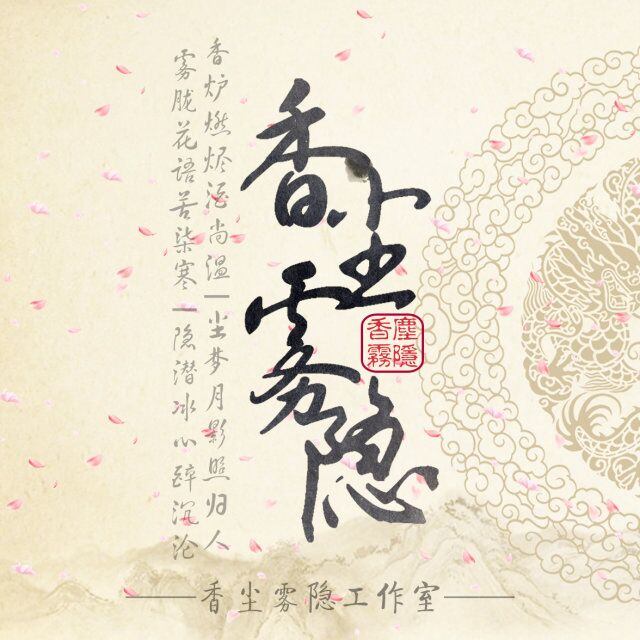 香炉燃烬酒尚温|尘梦月影照归人
雾胧花语苦柒寒|隐潜冰心醉沉沦
香尘雾隐
塵隱香霧
香尘雾隐工作室